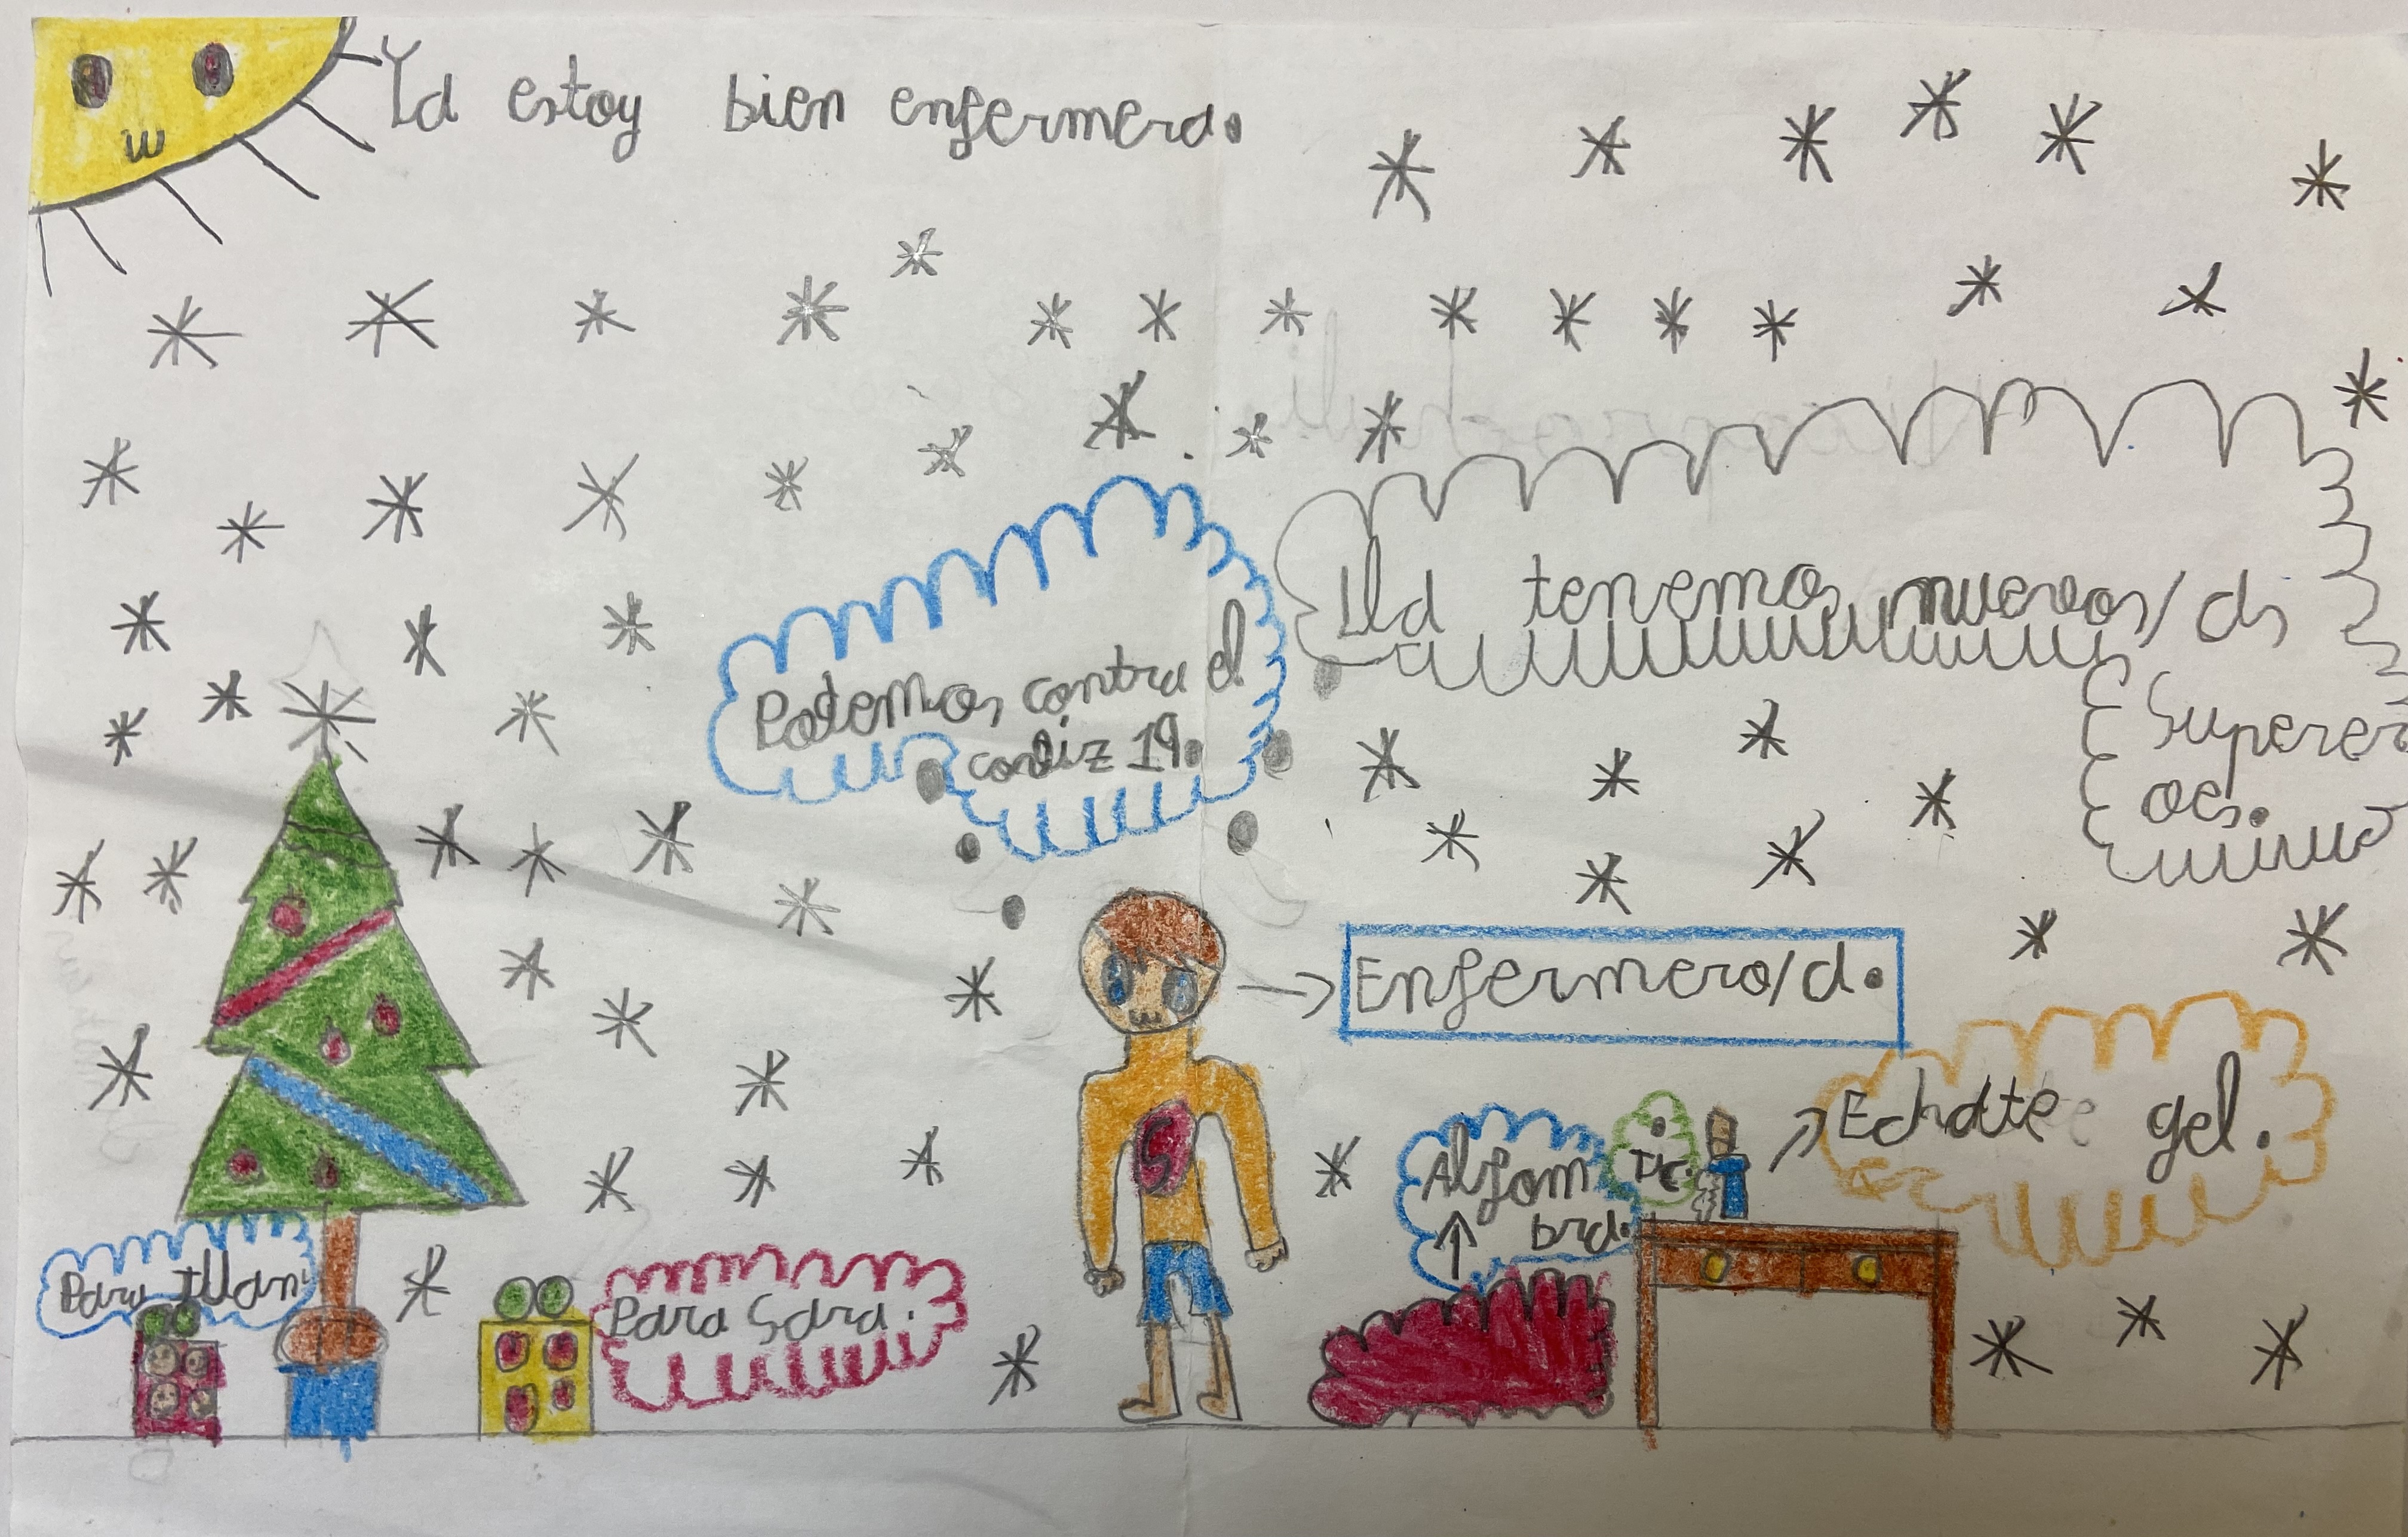 Ya estoy bien enfermera.
Podemos contra el
codiz 19.
Lla tenemos nuevos/as
Superer
oes.
Enfermero/a.
Echate gel.
Alfom
bra.
Para Juan.
Para Sara.
S